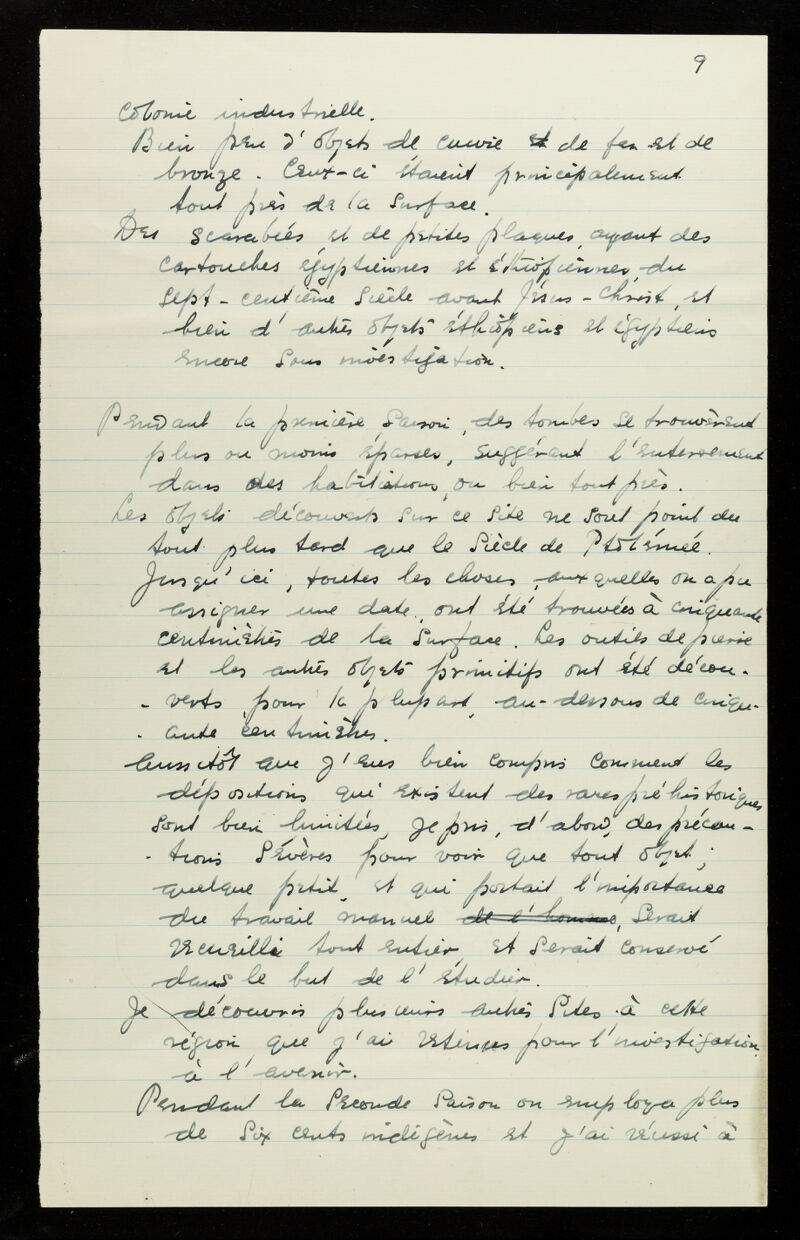 9
colonie industrielle.
Bien peu d'objets de cuivre et de fer et de
bronze. Ceux-ci étaient principalement
tout près de la surface.
Des scarabées et de petites plaques, ayant des
cartouches égyptiennes et éthiopiennes, du
sept-centième siècle avant Jésus-Christ, et
bien d'autres objets éthiopiens et égyptiens
encore sous investigation.
Pendant la première saison, des tombes se trouvèrent
plus ou moins éparses, suggérant l'enterrement
dans des habitations, ou bien tout près.
Les objets découverts sur ce site ne sont point du
tout plus tard que le siècle de Ptolémée.
Jusqu'ici, toutes les choses, auxquelles on a pu
assigner une date, ont été trouvées à cinquante
centimètres de la surface. Les outils de pierre
et les autres objets primitifs ont été décou-
- verts, pour la plupart, au-dessous de cinqu-
- ante centimètres.
Aussitôt que j'eus bien compris comment les
dépositions qui existent des races préhistoriques
sont bien limitées, je pris, d'abord, des précau-
- tions sévères pour voir que tout objet,
quelque petit, et qui portait l'importance
du travail manuel de l'homme, serait
recueilli tout entier, et serait conservé
dans le but de l'étudier.
Je découvris plusieurs autres sites à cette
région que j'ai retenues pour l'investigation
à l'avenir.
Pendant la seconde saison on employa plus
de six cents indigènes et j'ai réussi à